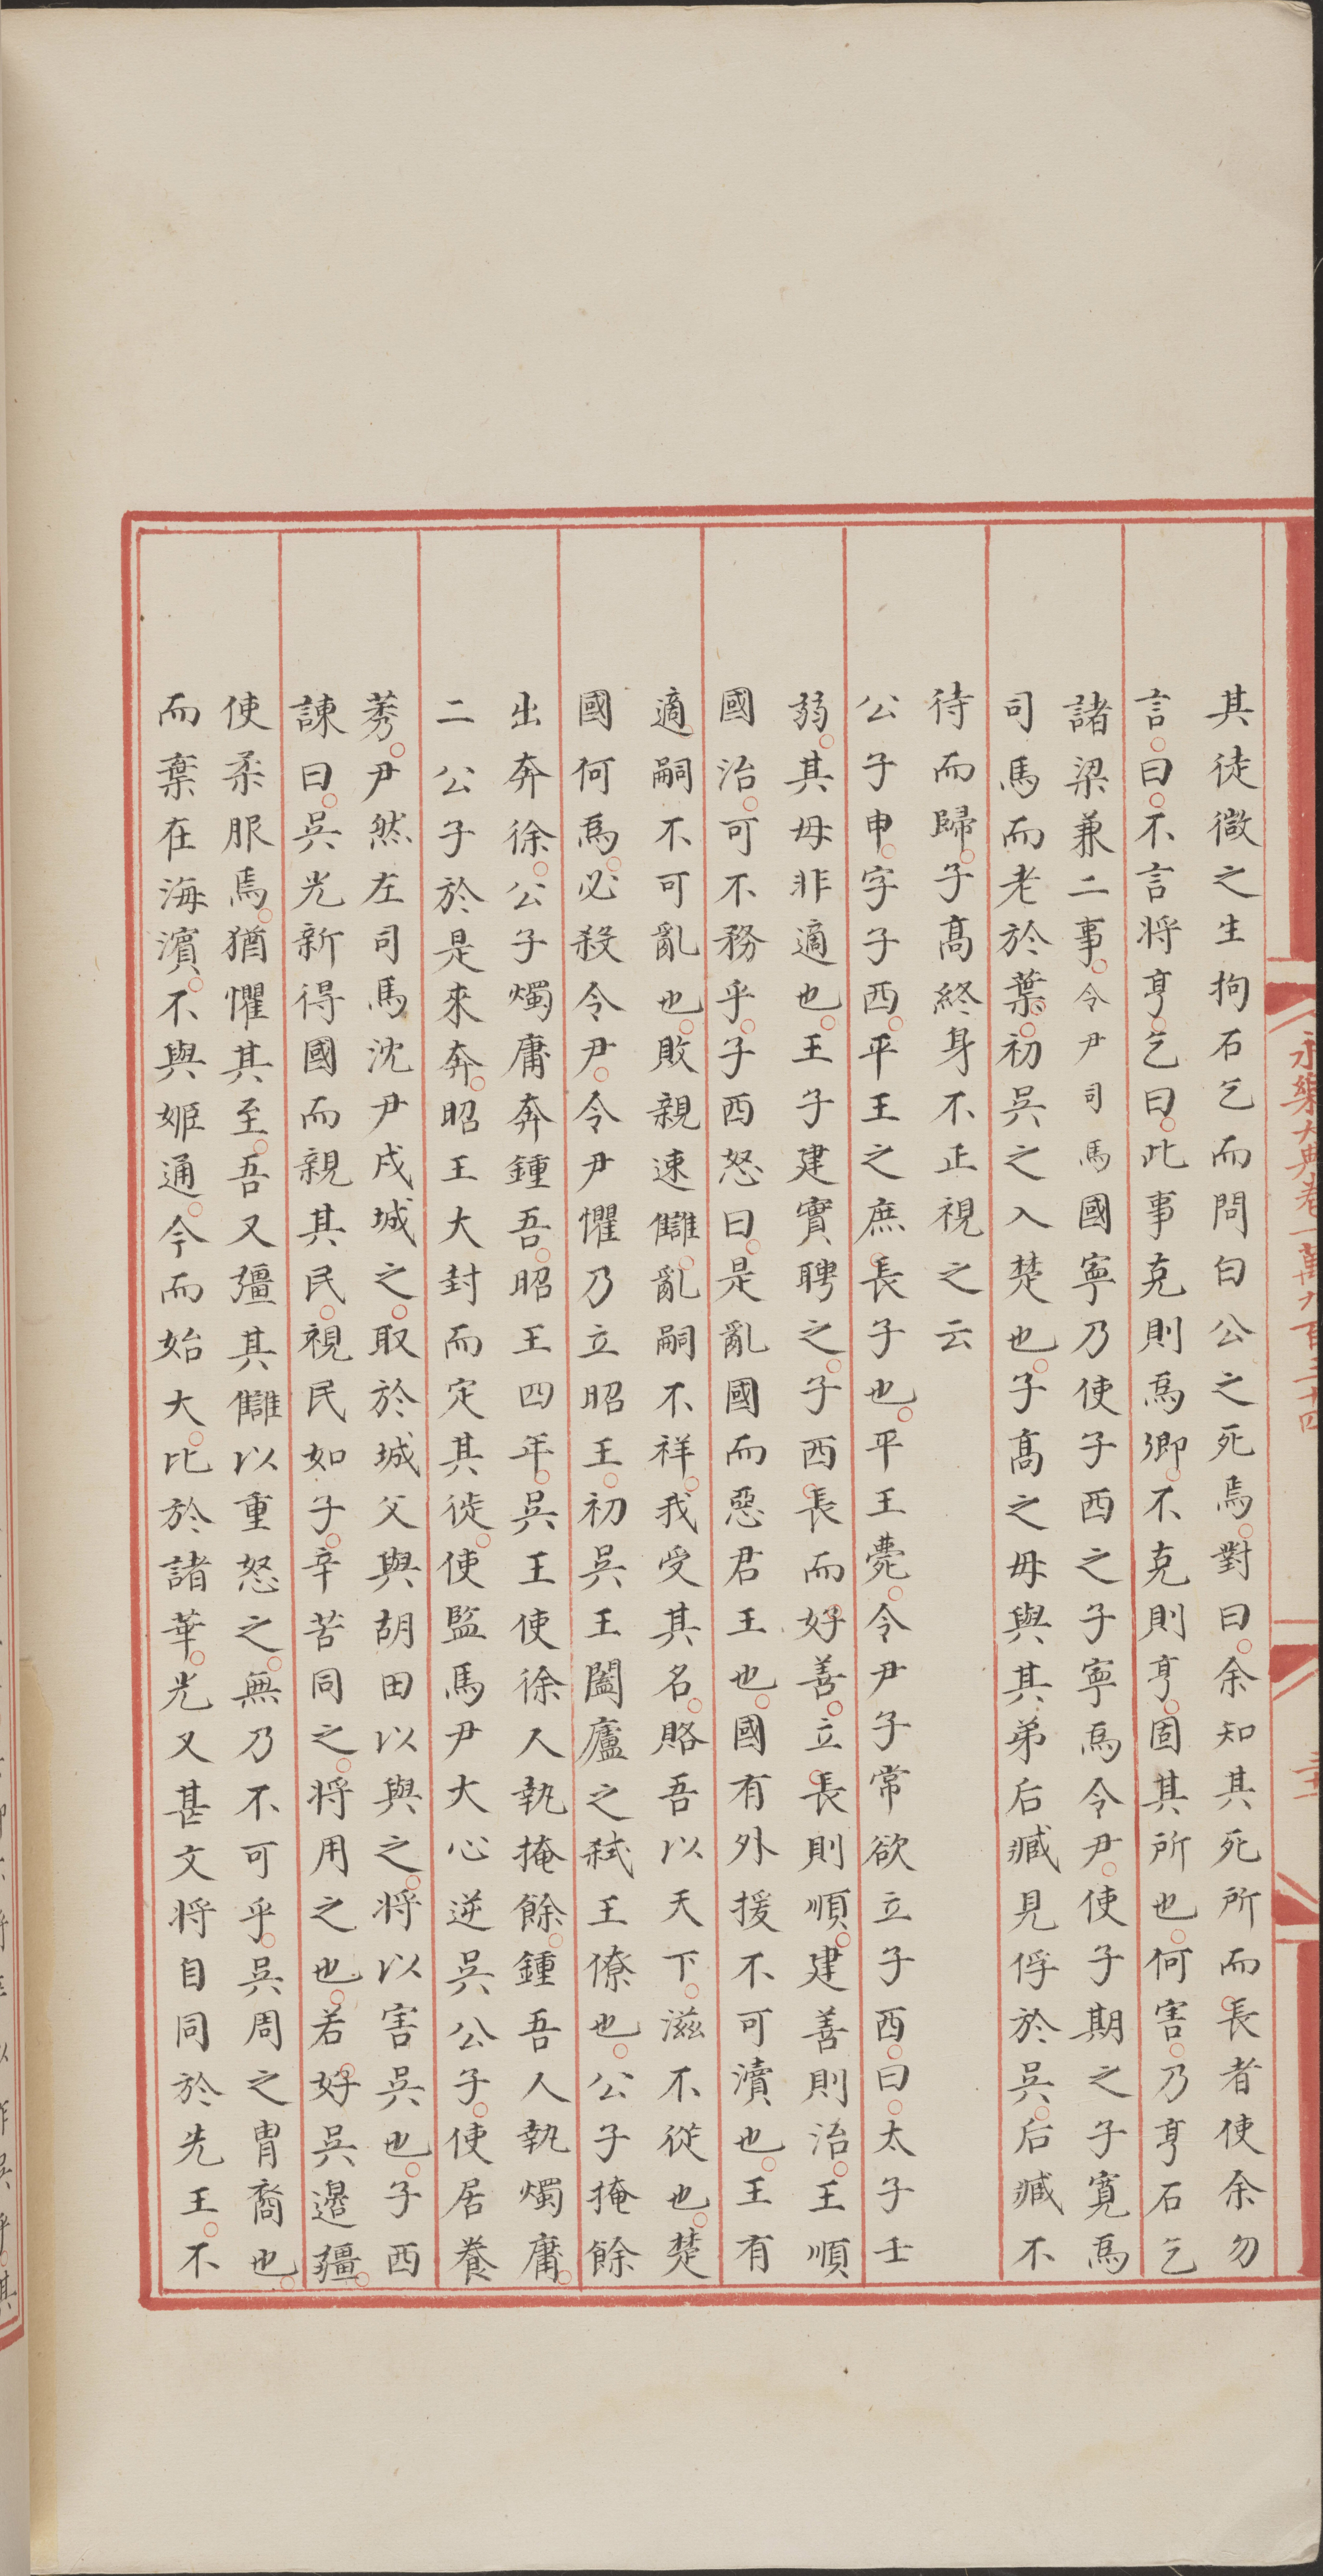 永樂大典卷一萬九百三十四
其徒微之生拘石乞而問白公之死焉對曰余知其死所而長者使余勿
言曰不言將亨乞曰此事克則爲卿不克則亨固其所也何害乃亨石乞
諸梁兼二事令尹司馬國寧乃使子西之子寧爲令尹使子期之子寬爲
司馬而老於葉初吳之入楚也子髙之母與其弟后臧見俘於吳后臧不
待而歸子髙終身不正視之云
公子申字子西平王之庶長子也平王薨令尹子常欲立子西曰太子壬
弱其母非適也王子建實聘之子西長而好善立長則順建善則治王順
國治可不務乎子西怒曰是亂國而惡君王也國有外援不可瀆也王有
適嗣不可亂也敗親速讎亂嗣不祥我受其名賂吾以天下滋不從也楚
國何爲必殺令尹令尹懼乃立昭王初吳王闔廬之弑王僚也公子掩餘
出奔徐公子燭庸奔鍾吾昭王四年吳王使徐人執掩餘鍾吾人執燭庸
二公子於是來奔昭王大封而定其徙使監馬尹大心逆吳公子使居養
莠尹然左司馬沈尹戌城之取於城父與胡田以與之將以害吳也子西
諫曰吳光新得國而親其民視民如子辛苦同之將用之也若好吳邊疆
使柔服焉猶懼其至吾又彊其讎以重怒之無乃不可乎吳周之胄裔也
而棄在海濱不與姬通今而始大比於諸華光又甚文將自同於先王不